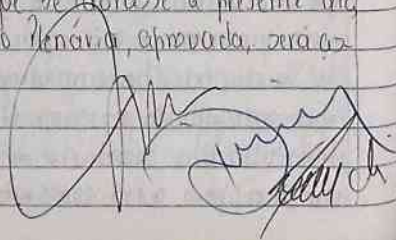 que se lavrasse a presente ata
o Plenária, aprovada, será as